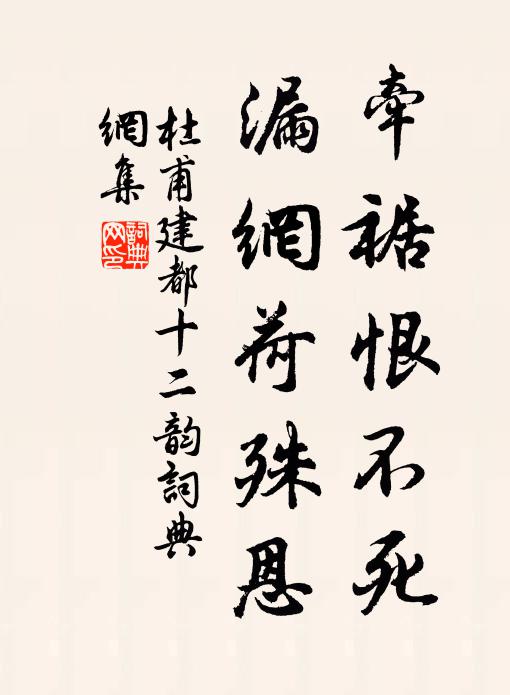 牽裾恨不死
漏網荷殊恩
杜甫建都十二韵詞典
網集
詞典
网印